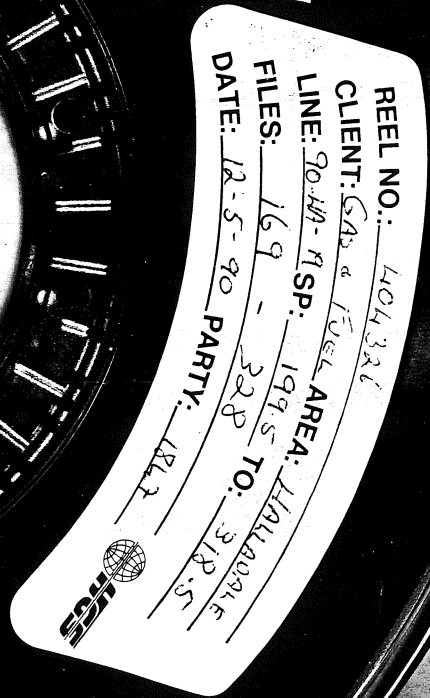 REEL NO.: 404326
CLIENT: GAS & FUEL AREA: HALLADALE
LINE: 90-HA-A SP: 199.5 TO: 318.5
FILES: 169 - 328
DATE: 12-5-90 PARTY:
HGS